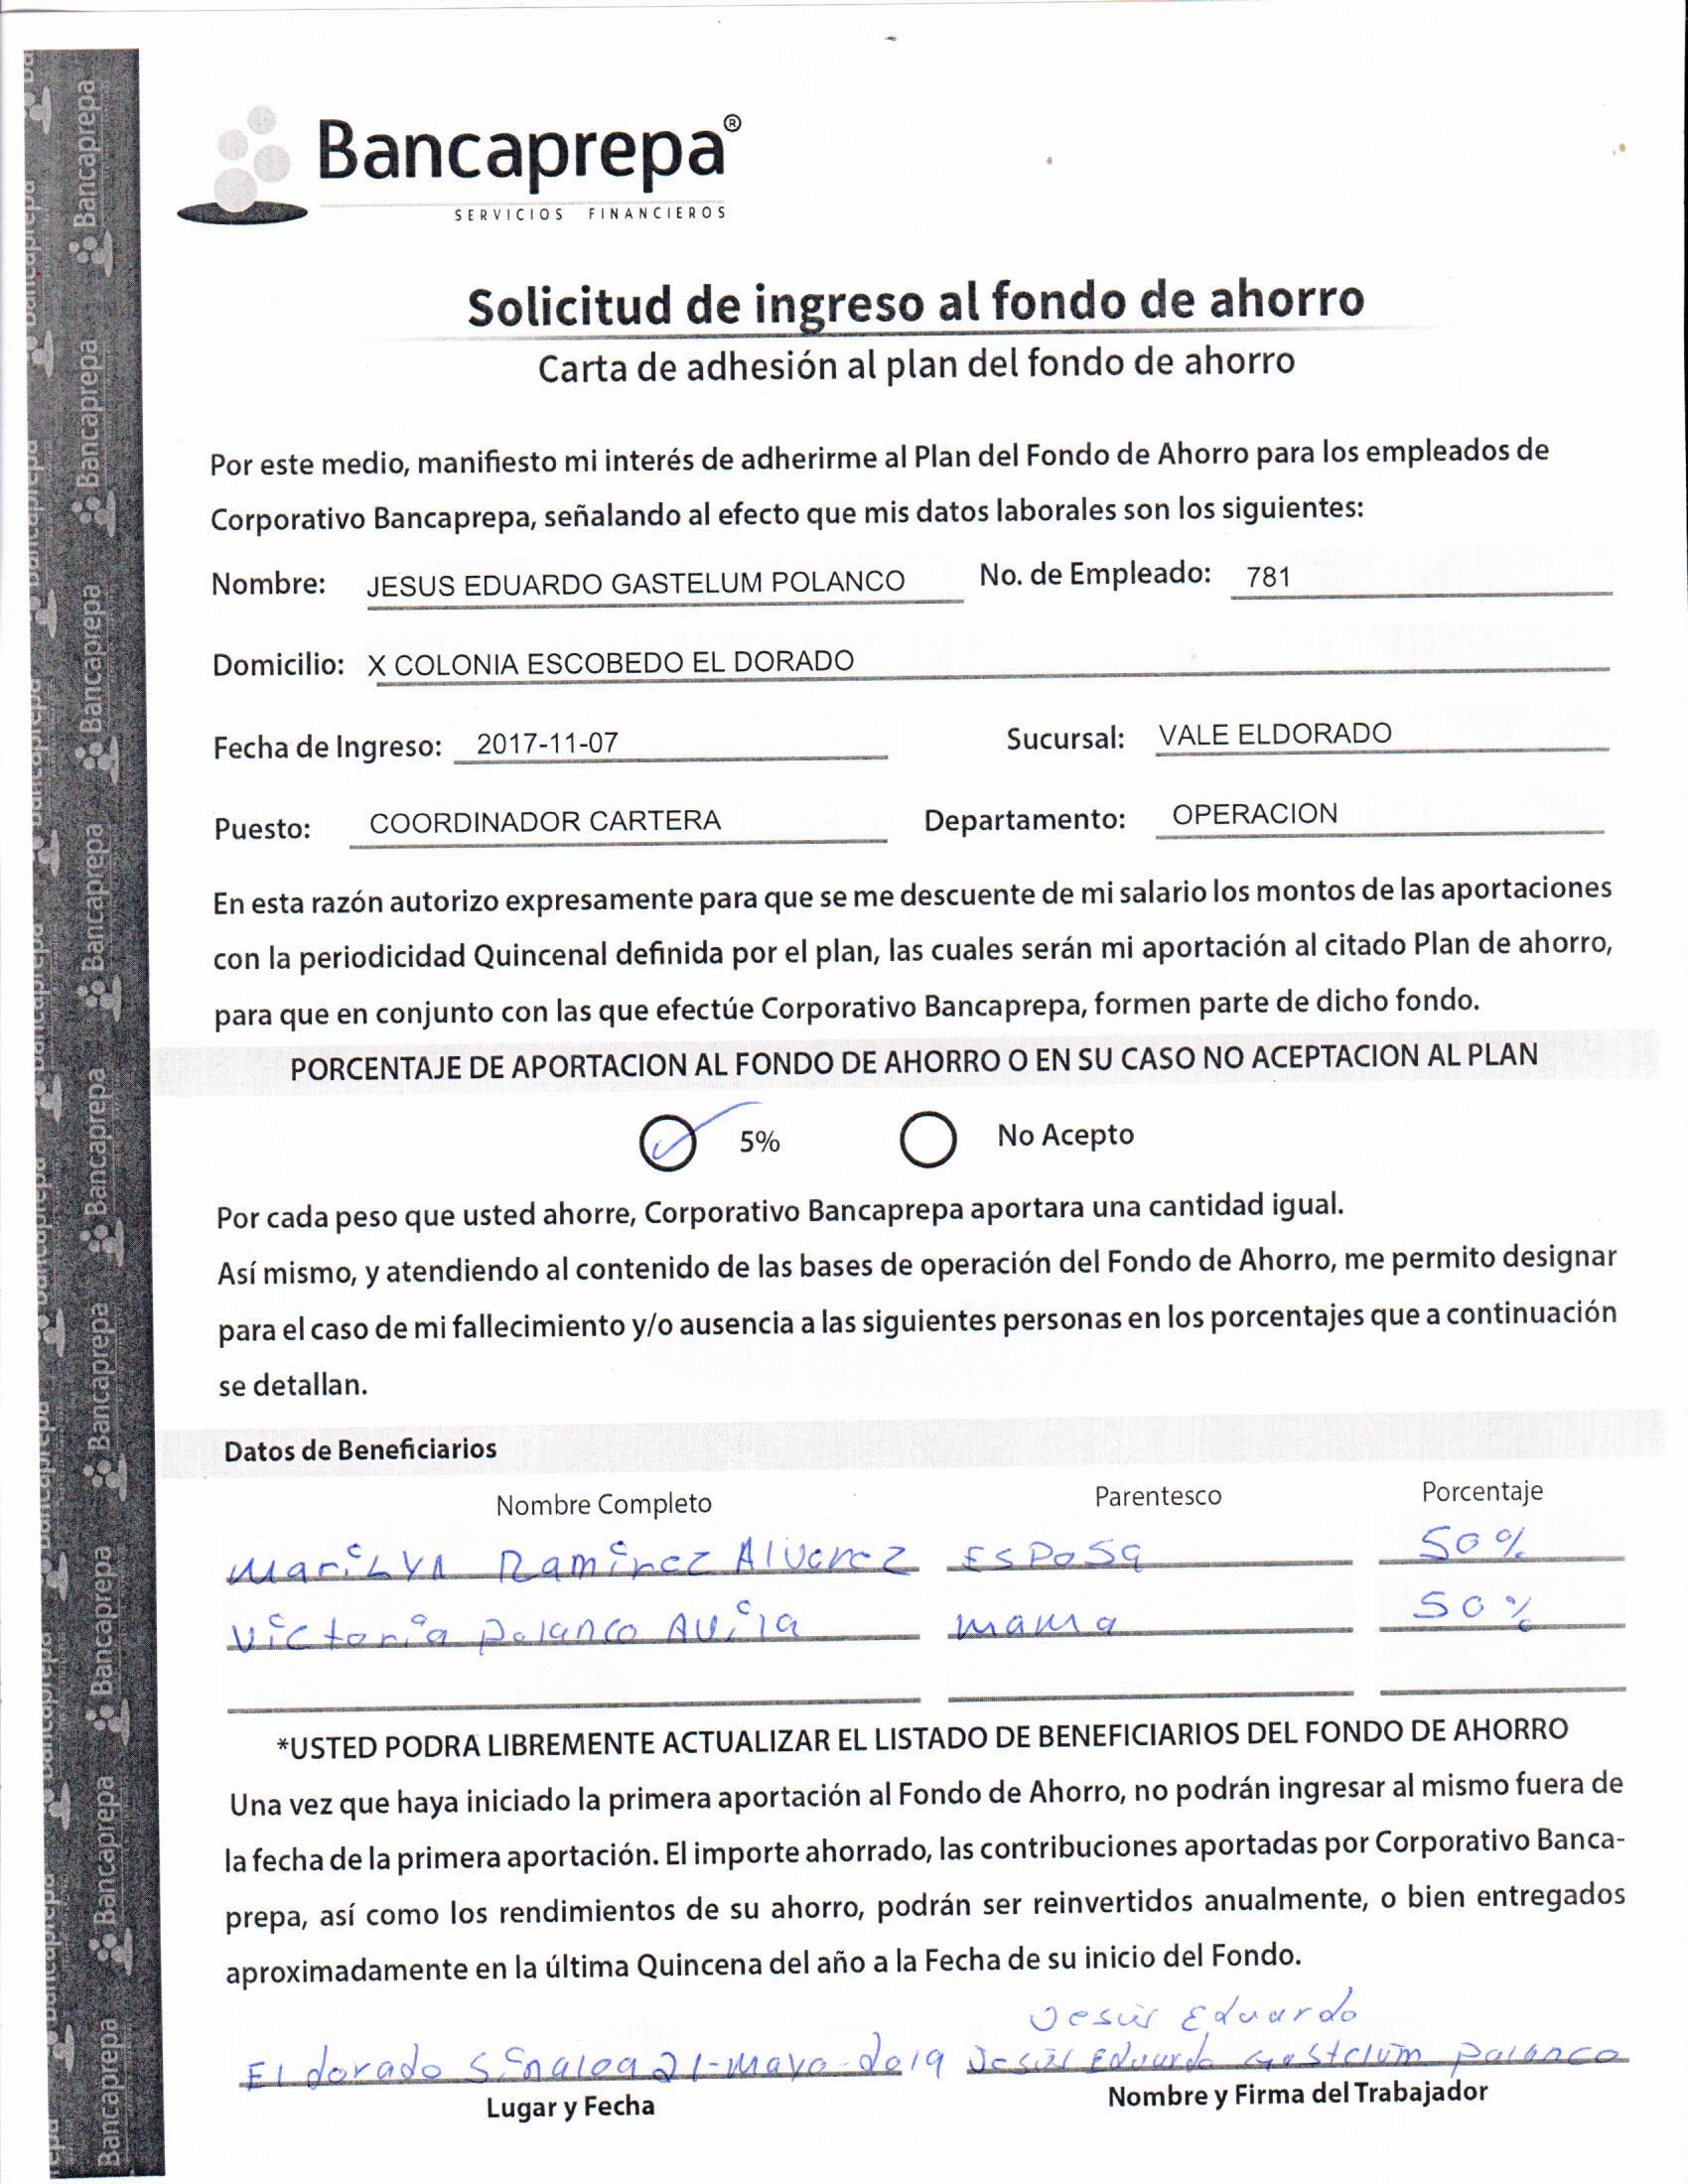 Bancaprepa®
SERVICIOS FINANCIEROS
Solicitud de ingreso al fondo de ahorro
Carta de adhesión al plan del fondo de ahorro
Por este medio, manifiesto mi interés de adherirme al Plan del Fondo de Ahorro para los empleados de
Corporativo Bancaprepa, señalando al efecto que mis datos laborales son los siguientes:
Nombre: JESUS EDUARDO GASTELUM POLANCO No. de Empleado: 781
Domicilio: X COLONIA ESCOBEDO EL DORADO
Fecha de Ingreso: 2017-11-07 Sucursal: VALE ELDORADO
Puesto: COORDINADOR CARTERA Departamento: OPERACION
En esta razón autorizo expresamente para que se me descuente de mi salario los montos de las aportaciones
con la periodicidad Quincenal definida por el plan, las cuales serán mi aportación al citado Plan de ahorro,
para que en conjunto con las que efectúe Corporativo Bancaprepa, formen parte de dicho fondo.
PORCENTAJE DE APORTACION AL FONDO DE AHORRO O EN SU CASO NO ACEPTACION AL PLAN
5% No Acepto
Por cada peso que usted ahorre, Corporativo Bancaprepa aportara una cantidad igual.
Así mismo, y atendiendo al contenido de las bases de operación del Fondo de Ahorro, me permito designar
para el caso de mi fallecimiento y/o ausencia a las siguientes personas en los porcentajes que a continuación
se detallan.
Datos de Beneficiarios
Nombre Completo Parentesco Porcentaje
Marilyn Ramirez Alvarez Esposa 50%
Victoria Polanco Avila mama 50%
*USTED PODRA LIBREMENTE ACTUALIZAR EL LISTADO DE BENEFICIARIOS DEL FONDO DE AHORRO
Una vez que haya iniciado la primera aportación al Fondo de Ahorro, no podrán ingresar al mismo fuera de
la fecha de la primera aportación. El importe ahorrado, las contribuciones aportadas por Corporativo Banca-
prepa, así como los rendimientos de su ahorro, podrán ser reinvertidos anualmente, o bien entregados
aproximadamente en la última Quincena del año a la Fecha de su inicio del Fondo.
Jesús Eduardo
El dorado Sinaloa 21-Mayo-2019 Jesús Eduardo Gastelum Polanco
Lugar y Fecha Nombre y Firma del Trabajador